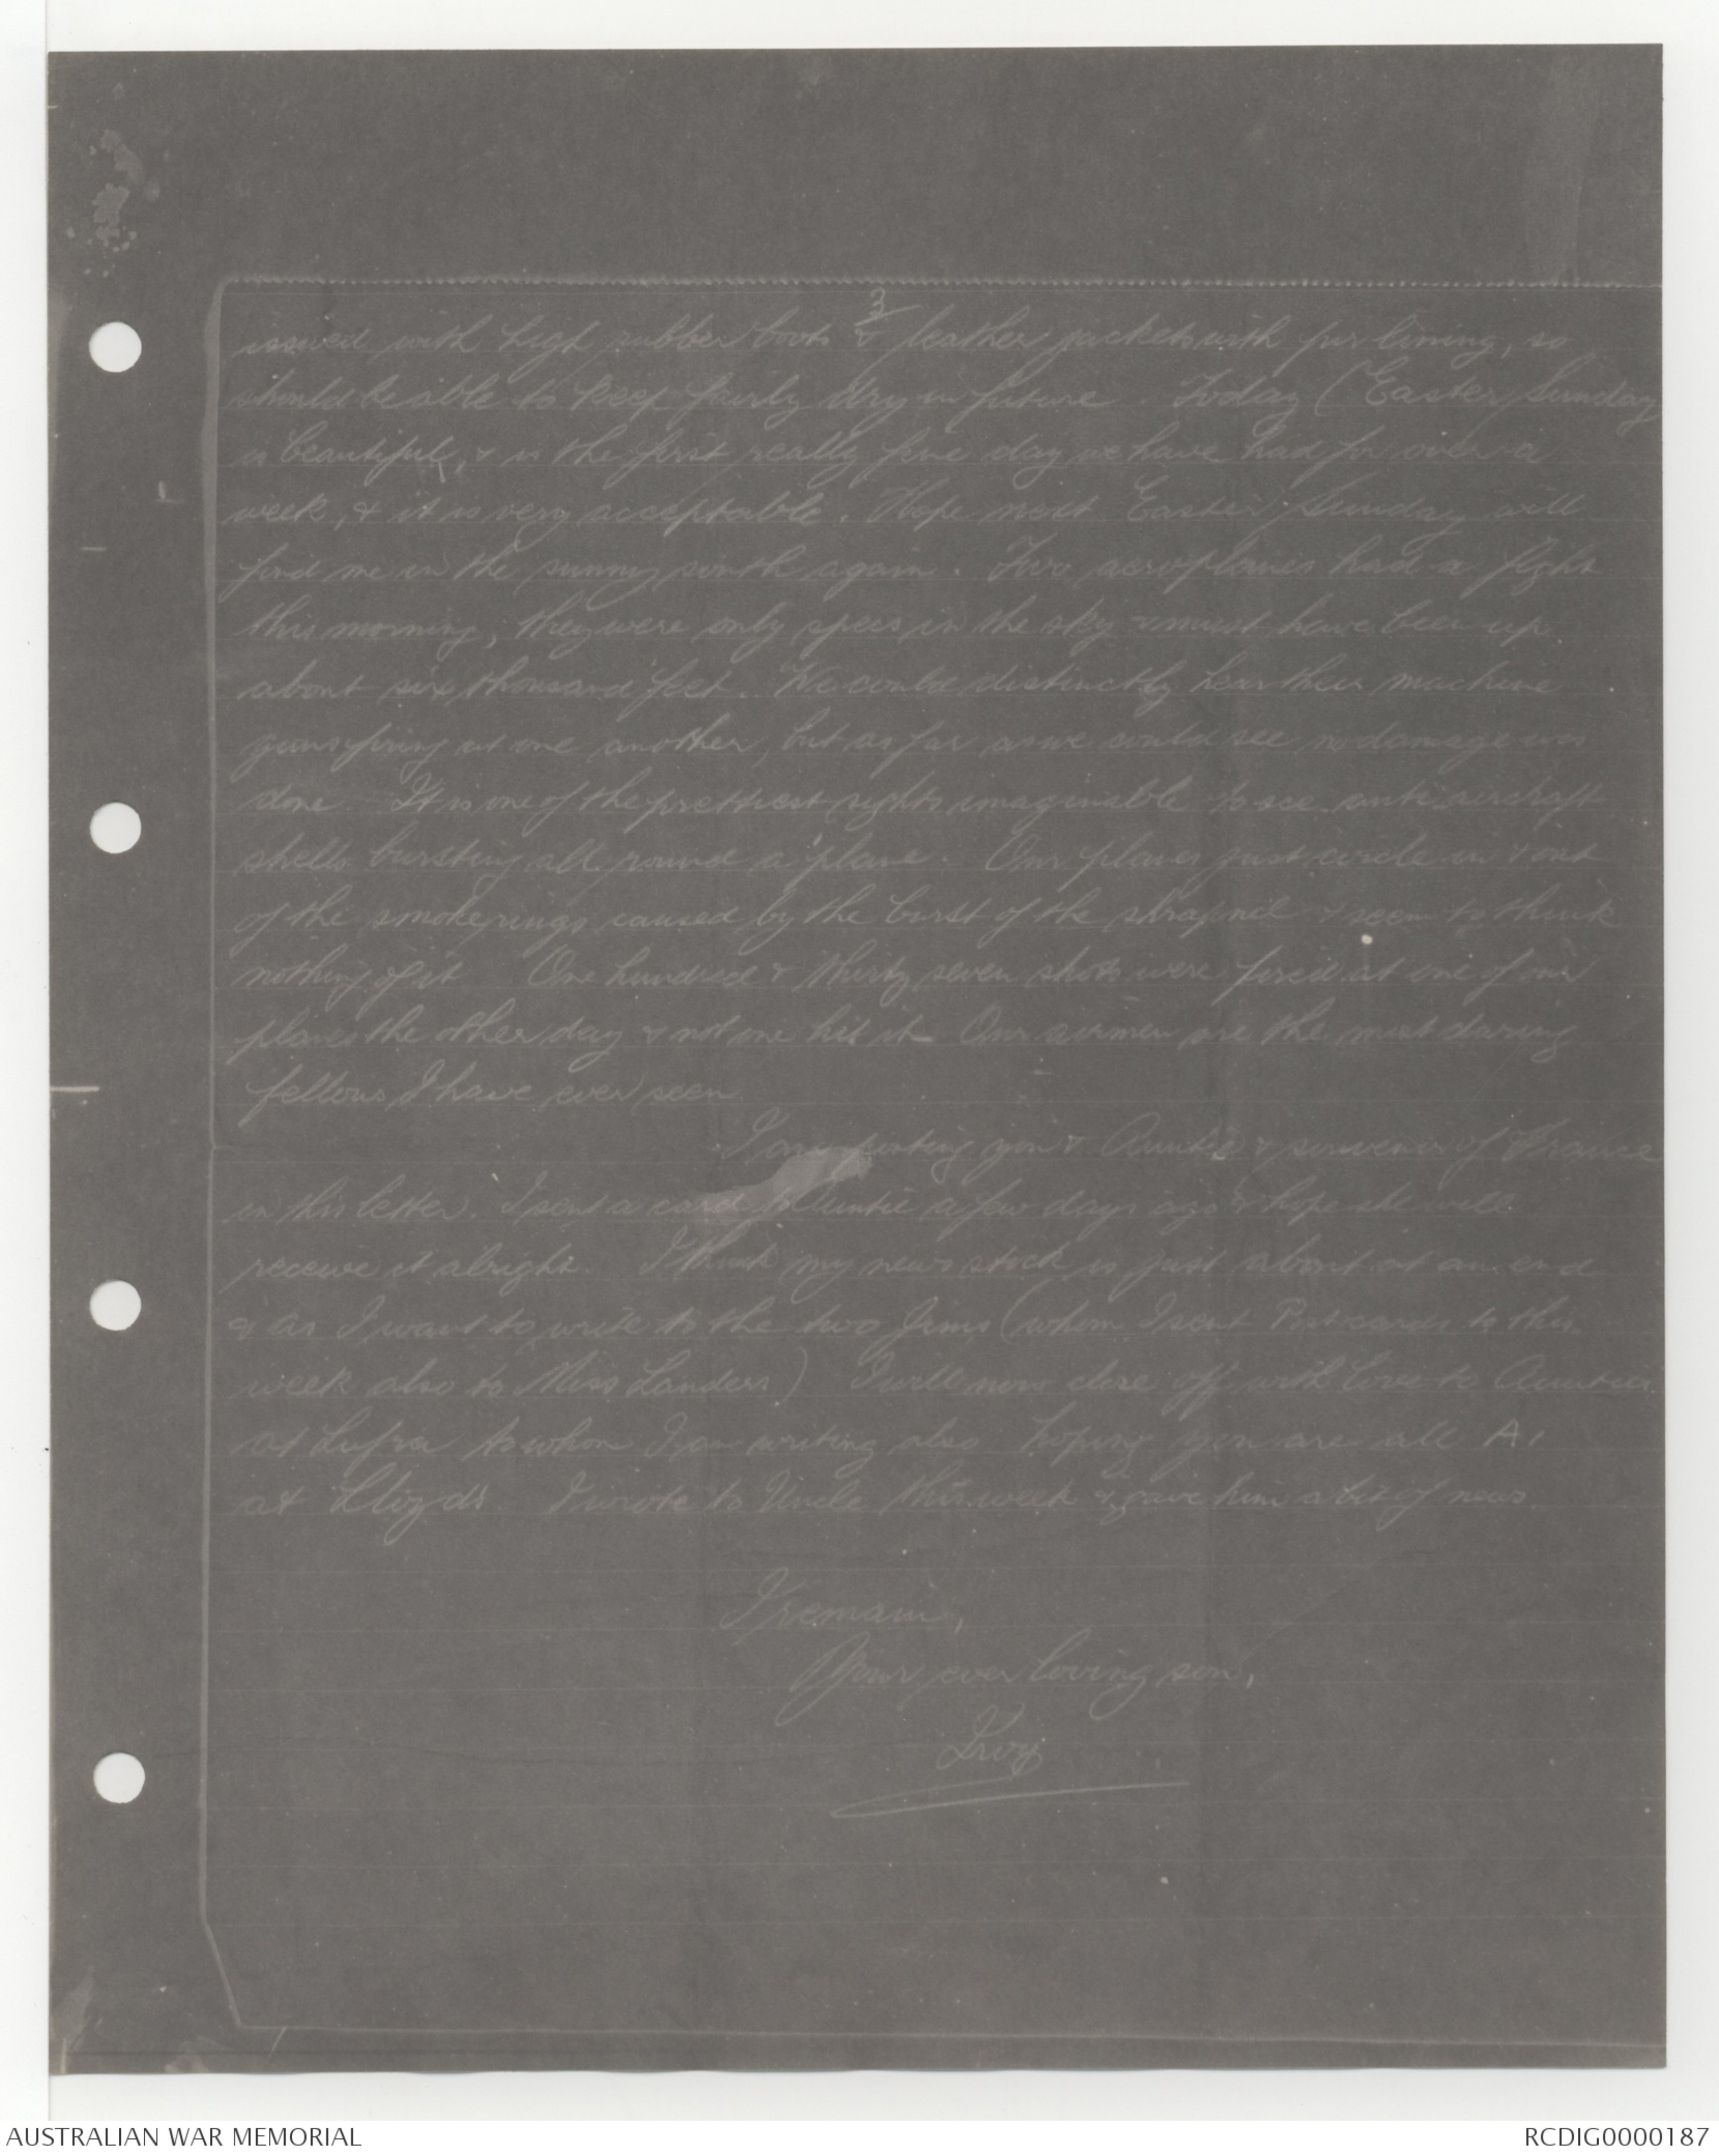 3
issued with high rubber boots & leather jackets with fur lining, so
should be able to keep fairly dry in future. Today (Easter Sunday
is beautiful, & is the first really fine day we have had for over a
week, & it is very acceptable. Hope next Easter Sunday will
find me in the sunny south again. Two aeroplanes had a fight
this morning, they were only specs in the sky & must have been up
about six thousand feet. We could distinctly hear their machine
guns firing at one another, but as far as we could see no damage was
done. It is one of the prettiest sights imaginable to see anti aircraft
shells bursting all round a plane. Our planes just circle in & out
of the smoke rings caused by the burst of the shrapnel & seem to think
nothing of it One hundred & thirty seven shots were fired at one of our
planes the other day & not one hit it Our airmen are the most daring
fellows I have ever seen
I am you & Auntie a souvenir of France
in this letter. I sent a card to Auntie a few days ago & hope she will
receive it alright. I think my news stock is just about at an end
& as I want to write to the two Jims (whom I sent Postcards to this
week also to Miss Landers) I will now close off with love to Auntie
at Lufra to whom I am writing also hoping you are all A1
at Lloyds. I wrote to Uncle this week & gave him a bit of news
I remain,
Your ever loving son,
Irvy
AUSTRALIAN WAR MEMORIAL
RCDIG0000187